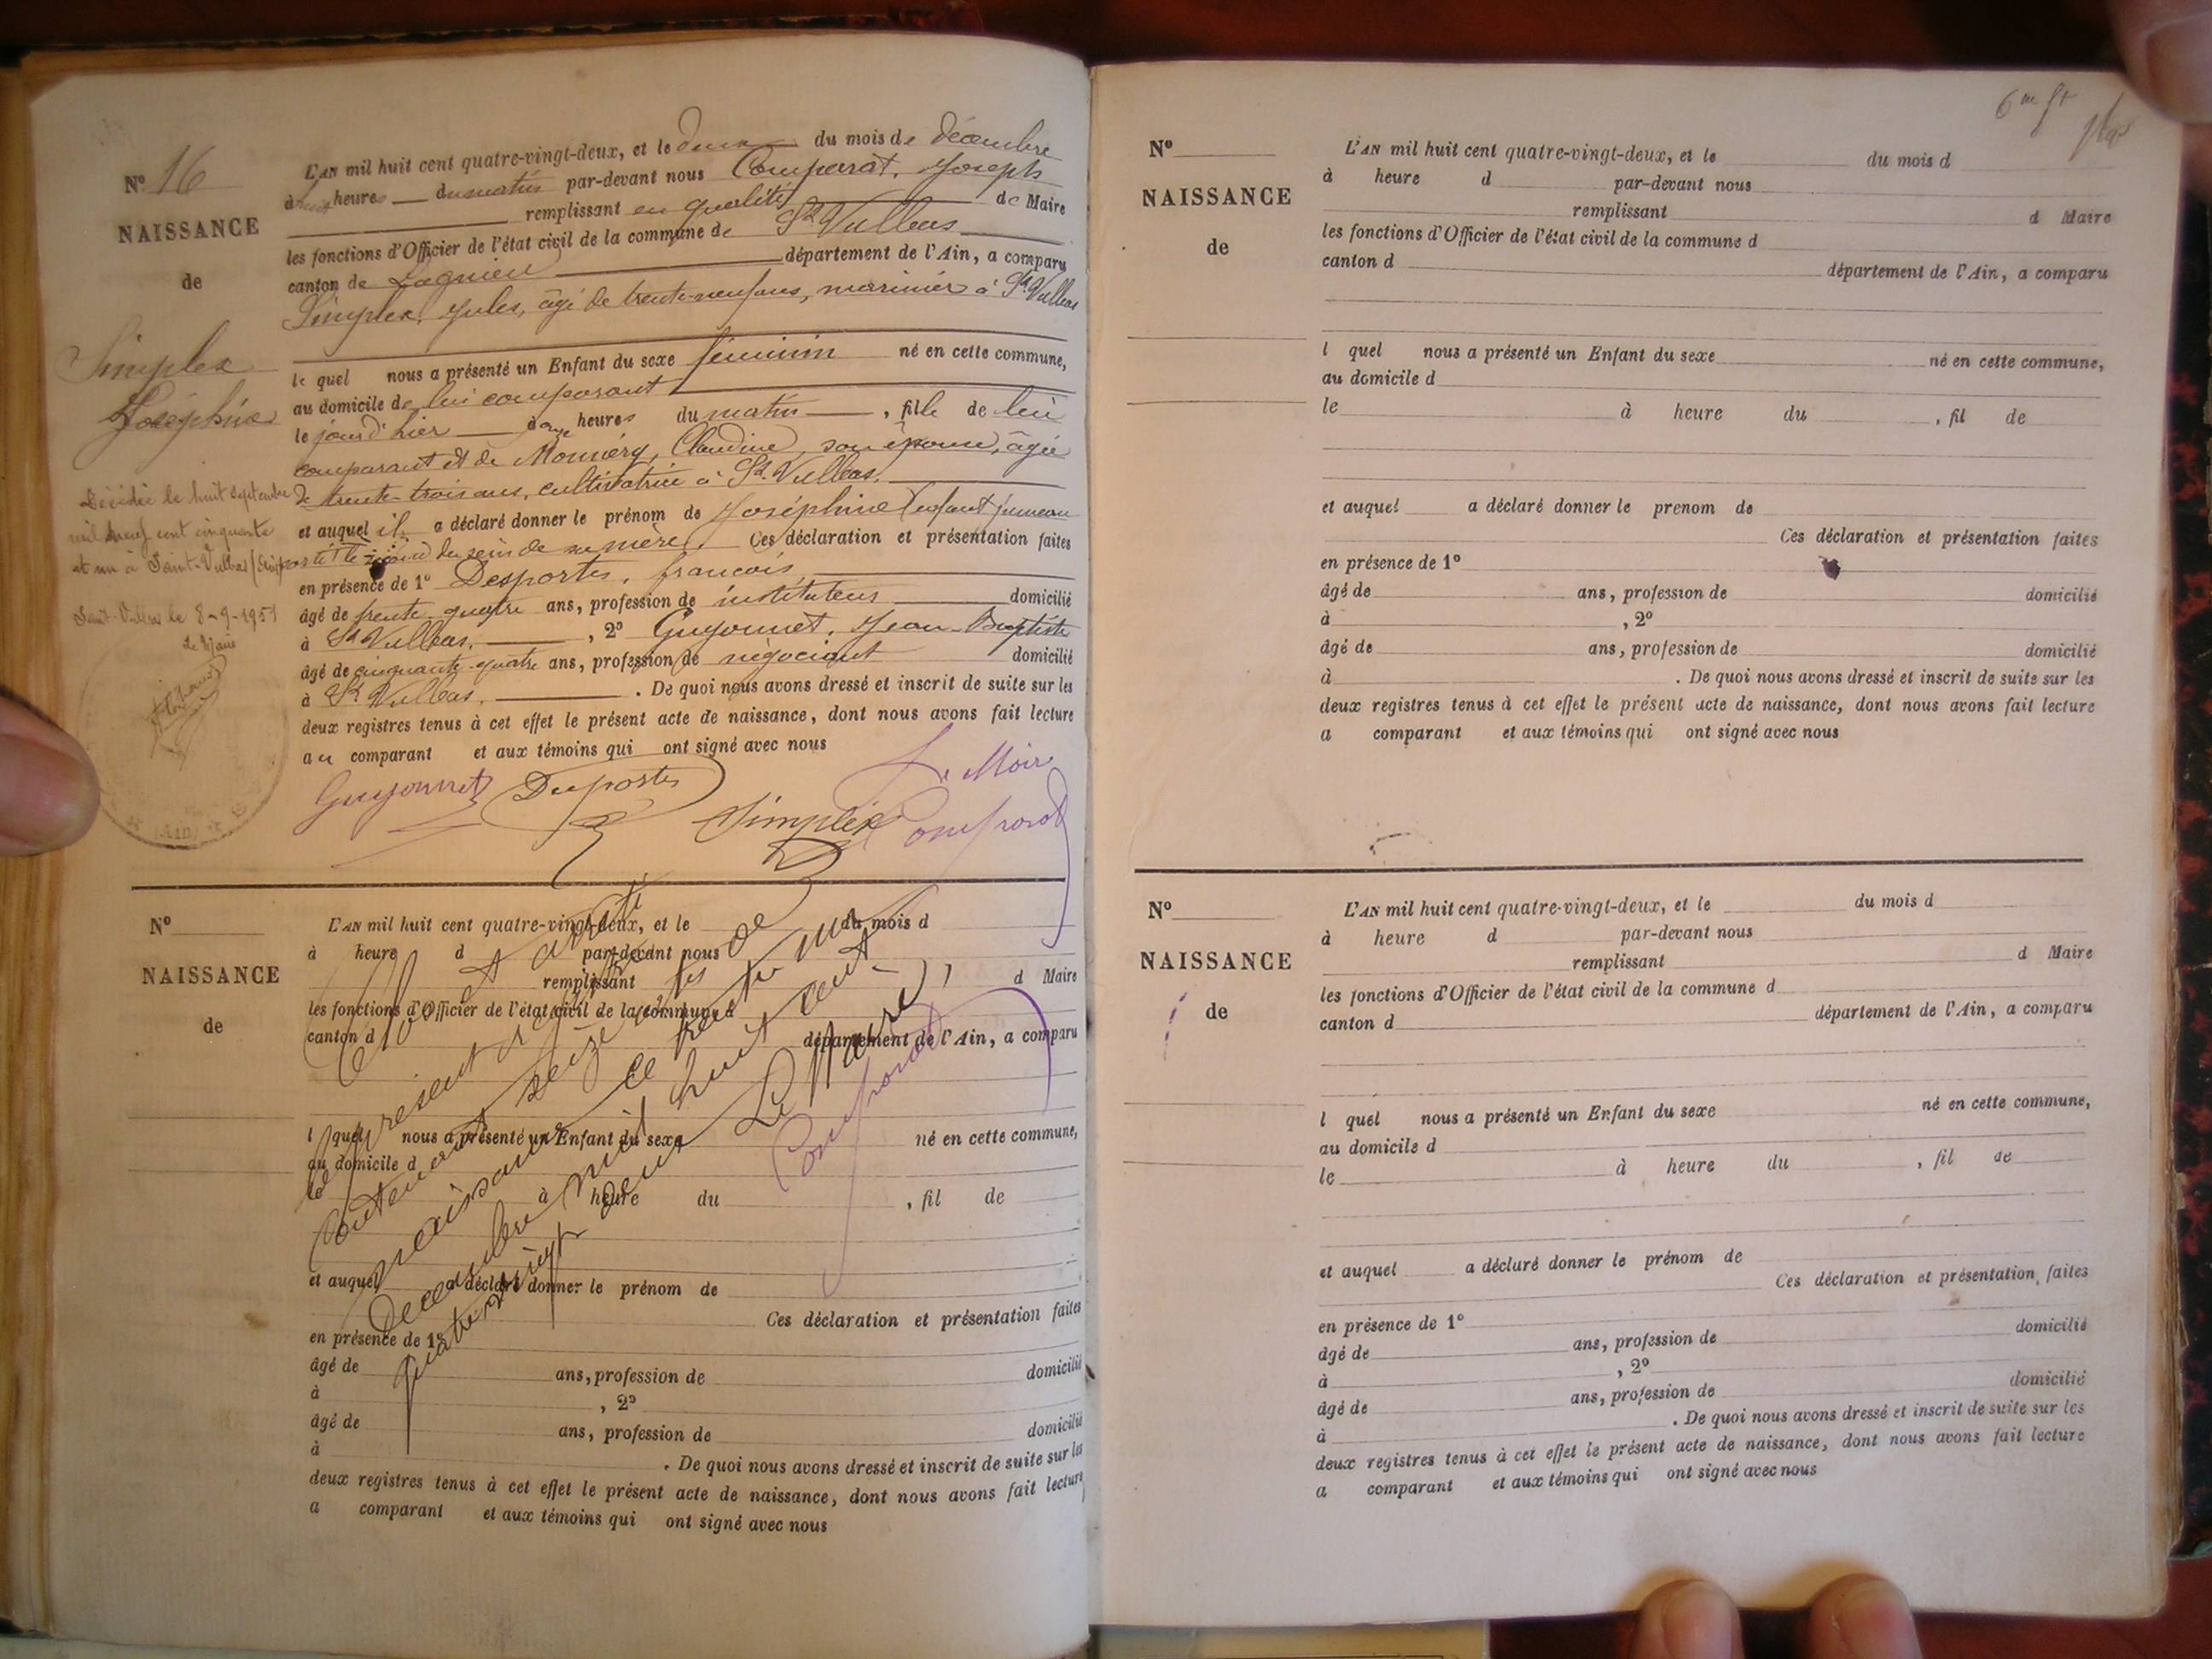 N° 16
NAISSANCE
de
Simplex
Joséphine
Décédée le huit septembre
mil neuf cent cinquante
et un à Saint-Vulbas (Ain)
Saint-Vulbas le 8-9-1951
Le Maire
L'AN mil huit cent quatre-vingt-deux, et le deux du mois de décembre
à heures du matin par-devant nous Comparat, Joseph
remplissant en qualité de Maire
les fonctions d'Officier de l'état civil de la commune de St Vulbas
canton de Lagnieu département de l'Ain, a comparu
Simplex, Jules, âgé de trente-neuf ans, marinier à St Vulbas
le quel nous a présenté un Enfant du sexe féminin né en cette commune,
au domicile de lui comparant
le jour d'hier à onze heures du matin, fille de lui
comparant et de Monnéry, Claudine, son épouse, âgée
de trente-trois ans, cultivatrice à St Vulbas.
et auquel il a déclaré donner le prénom de Joséphine (enfant jumeau
sorti le second du sein de sa mère). Ces déclaration et présentation faites
en présence de 1° Desportes, françois,
âgé de trente-quatre ans, profession de instituteur domicilié
à St Vulbas, , 2° Guyonnet, Jean-Baptiste
âgé de cinquante-quatre ans, profession de négociant domicilié
à St Vulbas. . De quoi nous avons dressé et inscrit de suite sur les
deux registres tenus à cet effet le présent acte de naissance, dont nous avons fait lecture
au comparant et aux témoins qui ont signé avec nous
Le Maire
Guyonnet Desportes Simplex Comparat
N°
NAISSANCE
de
L'AN mil huit cent quatre-vingt-deux, et le du mois d
à heure d par-devant nous
remplissant d Maire
les fonctions d'Officier de l'état civil de la commune d
canton d département de l'Ain, a comparu
l quel nous a présenté un Enfant du sexe né en cette commune,
au domicile d
le à heure du , fil de
et auquel a déclaré donner le prénom de
Ces déclaration et présentation faites
en présence de 1°
âgé de ans, profession de domicilié
à , 2°
âgé de ans, profession de domicilié
à . De quoi nous avons dressé et inscrit de suite sur les
deux registres tenus à cet effet le présent acte de naissance, dont nous avons fait lecture
a comparant et aux témoins qui ont signé avec nous
Clos et arrêté
le présent registre
contenant seize actes de
naissance ce trente un
Décembre mil huit cent
quatre vingt deux
Le Maire,
Comparat
6me ft
N°
NAISSANCE
de
L'AN mil huit cent quatre-vingt-deux, et le du mois d
à heure d par-devant nous
remplissant d Maire
les fonctions d'Officier de l'état civil de la commune d
canton d département de l'Ain, a comparu
l quel nous a présenté un Enfant du sexe né en cette commune,
au domicile d
le à heure du , fil de
et auquel a déclaré donner le prenom de
Ces déclaration et présentation faites
en présence de 1°
âgé de ans, profession de domicilié
à , 2°
âgé de ans, profession de domicilié
à . De quoi nous avons dressé et inscrit de suite sur les
deux registres tenus à cet effet le présent acte de naissance, dont nous avons fait lecture
a comparant et aux témoins qui ont signé avec nous
N°
NAISSANCE
de
L'AN mil huit cent quatre-vingt-deux, et le du mois d
à heure d par-devant nous
remplissant d Maire
les fonctions d'Officier de l'état civil de la commune d
canton d département de l'Ain, a comparu
l quel nous a présenté un Enfant du sexe né en cette commune,
au domicile d
le à heure du , fil de
et auquel a déclaré donner le prénom de
Ces déclaration et présentation faites
en présence de 1°
âgé de ans, profession de domicilié
à , 2°
âgé de ans, profession de domicilié
à . De quoi nous avons dressé et inscrit de suite sur les
deux registres tenus à cet effet le présent acte de naissance, dont nous avons fait lecture
a comparant et aux témoins qui ont signé avec nous